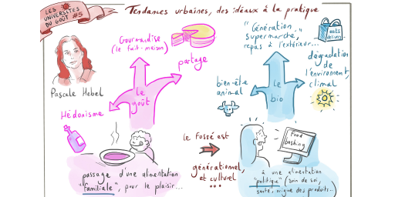 LES UNIVERSITÉS DU GOÛT #5
Tendances urbaines, des idéaux à la pratique
Pascale Hébel
Gourmandise
(le fait-maison)
partage
le
goût
Hédonisme
passage d'une alimentation
"familiale", pour le plaisir...
le fossé est
générationnel,
et culturel
...
"Génération"
supermarché,
repas à l'extérieur...
dégradation
de l'environnement,
climat
bien-être
animal
le
bio
Food
bashing
à une alimentation
"politique" (soin de soi,
santé, origine des produits...)